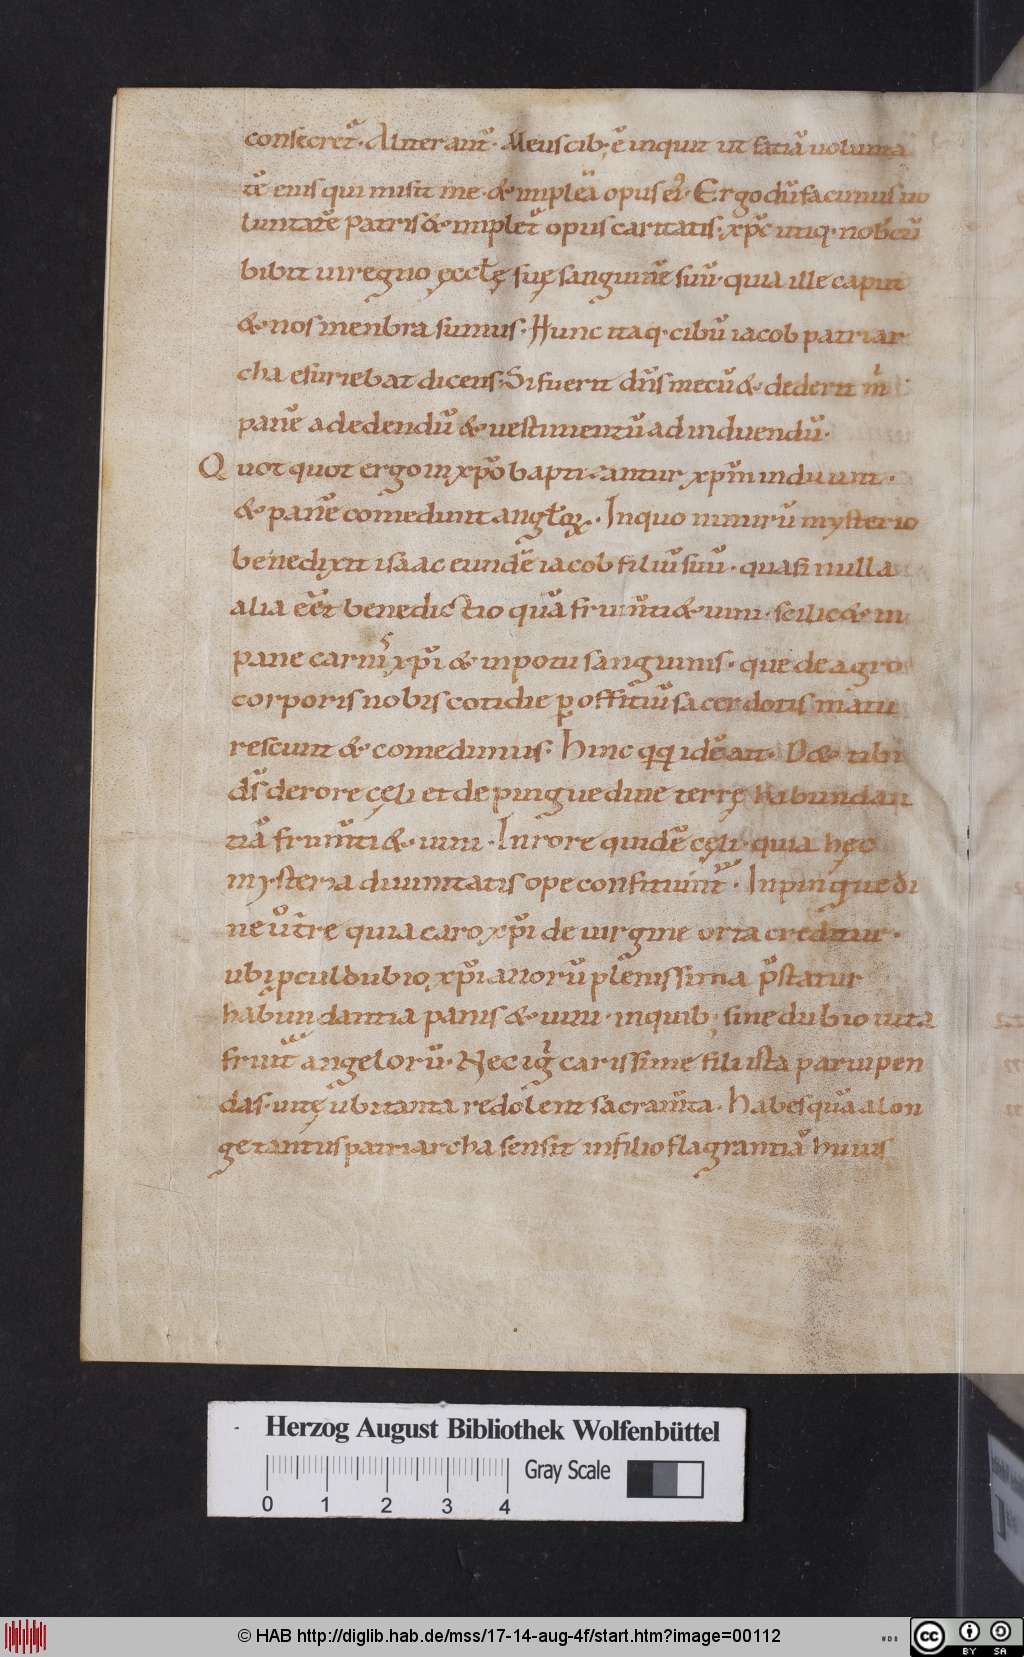 consecret̄. Aliter aut̄. Meus cib; ē inquit ut fatiā uolunta
tē eius qui misit me. & impleā opus ei. Ergo dū facimus uo
luntatē patris & implet̄ opus caritatis. xp̄c utiq. nobcū
bibit in regno ęccłę suę sanguinē suū. quia ille caput
& nos menbra sumus. Hunc itaq. cibū iacob patriar
cha esuriebat dicens. Si fuerit dn̄s mecū & dederit m̄
panē ad edendū & uestimentū ad induendū.
Quot quot ergo in xp̄o baptizantur xp̄m induunt.
& panē comedunt angłoꝝ. In quo nimirū mysterio
benedixit isaac eundē iacob filiū suū. quasi nulla
alia eēt benedictio quā frum̄ti & uini. scilic& in
pane carnis xp̄i & in potu sanguinis. que de agro
corporis nobis cotidie ꝑ offitiū sacerdotis matu
rescunt & comedimus. Hinc qq idē ait. D& tibi
ds̄ de rore cęli et de pinguedine terrę habundan
tiā frum̄ti & uini. In rore quidē cęli. quia hęc
mysteria diuinitatis ope confitium̄. In pinguedi
ne ů t̄re quia caro xp̄i de uirgine orta creditur.
ubi ꝓculdubio xp̄ianorū plenissima p̄statur
habundantia panis & uini. in quib; sine dubio uita
fruit̄ angelorū. Nec iḡ carissime fili ista paruipen
das. uitę ubi tanta redolent sacram̄ta. Habes quā a lon
ge tantus patriarcha sensit in filio flagrantiā huius
Herzog August Bibliothek Wolfenbüttel
0 1 2 3 4
Gray Scale
© HAB http://diglib.hab.de/mss/17-14-aug-4f/start.htm?image=00112
WDB
cc BY SA